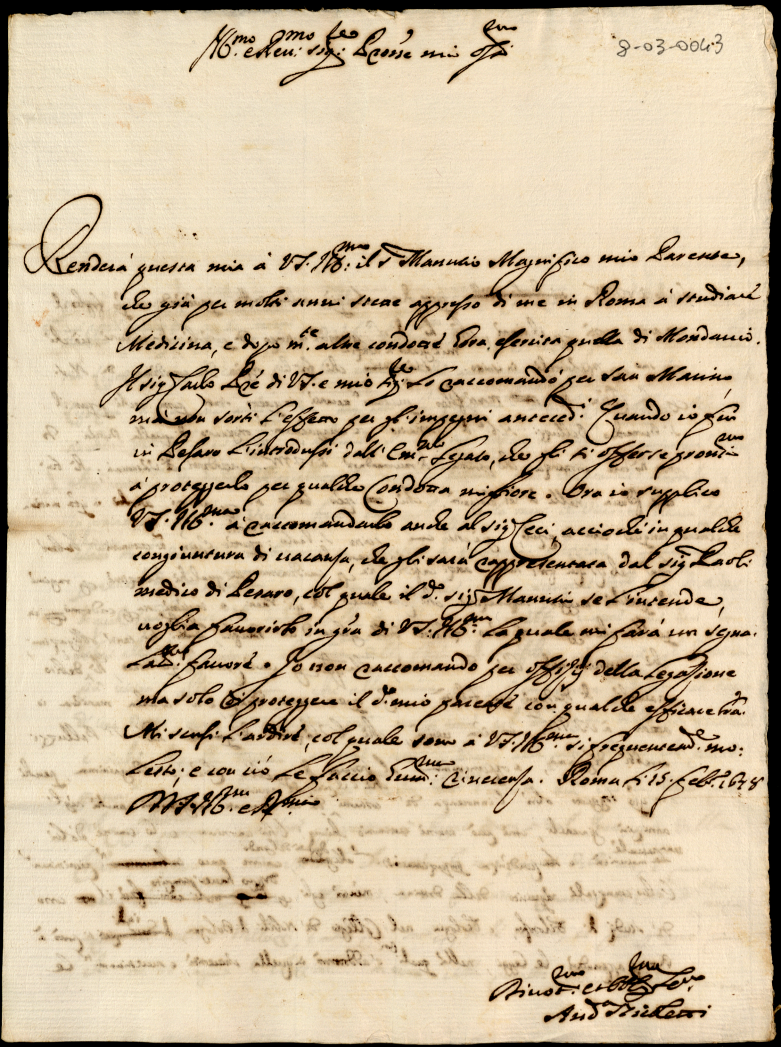 Ill.mo e Rev.mo Sig.re Prone mio Oss.mo
8-03-0043
Renderà questa mia à VS. Ill.ma il S.r Manutio Magnifico mio Parente,
che già per molti anni stette appresso di me in Roma à studiare
Medicina, e dopo m.te altre condotte hora esercita quella di Mondavio.
Il sig. Carlo di VS. e mio lo raccomandò per San Marino
ma non sortì l'effetto per gl'impegni anteced.ti Quando io fui
in Pesaro l'introdussi dall'Em.mo Legato, che gli si offerse prontiss.mo
à proteggerlo per qualche Condotta migliore. Ora io supplico
VS. Ill.ma à raccomandarlo anche al sig. Ceci, acciochè in qualche
congiuntura di vacanza, che gli sarà rappresentata dal sig. Paoli
medico di Pesaro, col quale il d.o sig. Manutio se l'intende,
voglia favorirlo in gra di VS. Ill.ma la quale mi farà un segna-
lat.mo favore. Io non raccomando per offitij della Legazione
ma solo di proteggere il d.o mio parente con qualche efficace lra.
Mi scusi l'ardire, col quale sono à VS. Ill.ma sì frequentem.te mo-
lesto; e con ciò le faccio hum.ma riverenza. Roma li 15. Feb.o 1678
Di VS. Ill.ma e R.ma
Divot.mo et Obl.mo Ser.re
And.a